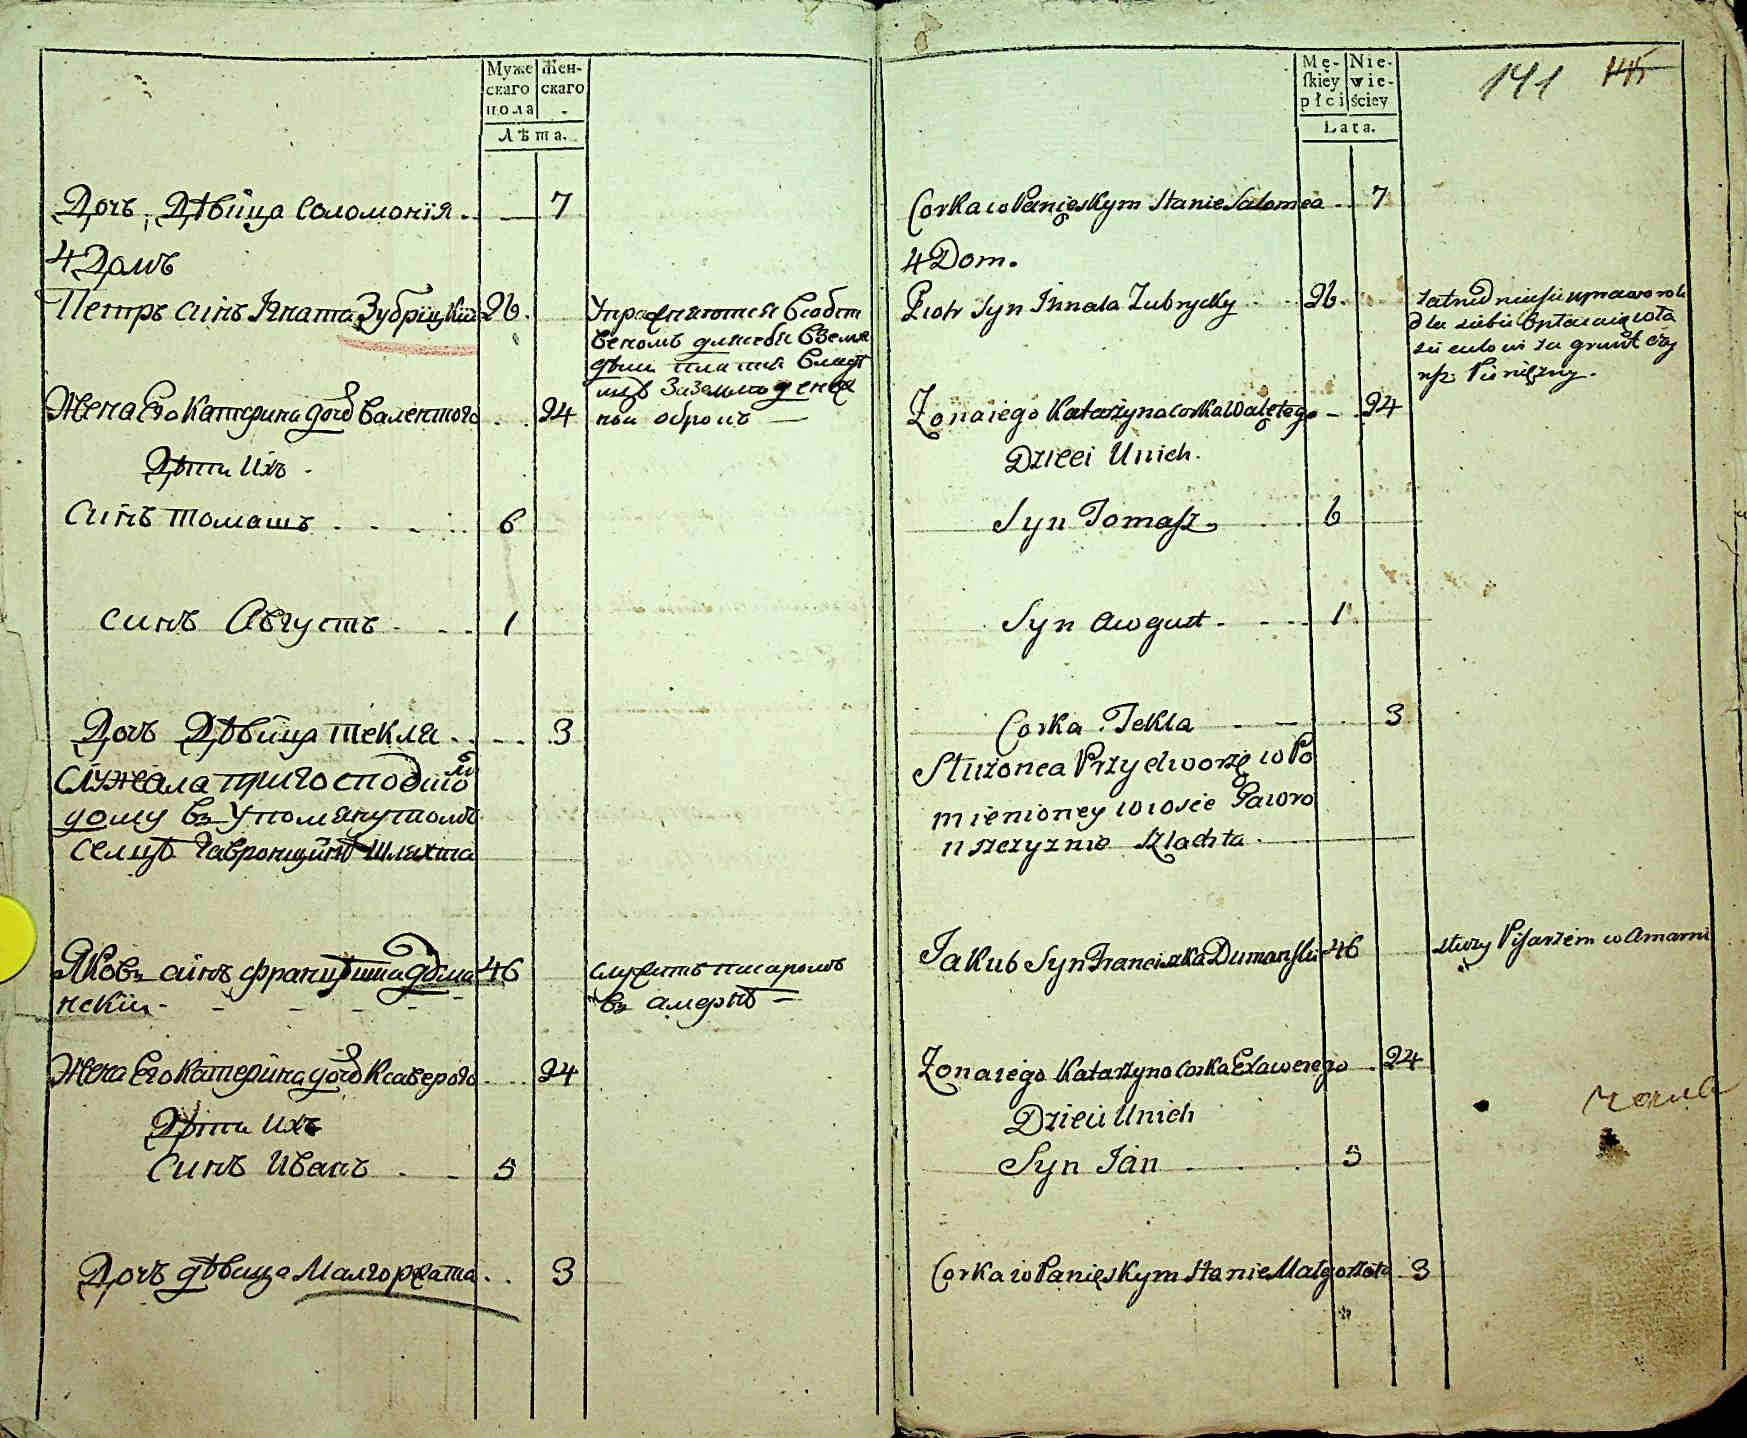 Муже
скаго
пола
Жен-
скаго
-
Лѣта.
Дочь Дѣвица Соломонїя . — 7
4 Домъ
Петръ синъ Игната Зубрицкий 26.
Упражняются в собст
веномъ для себя вземле
дѣлiи
за землю денеж
ной оброкъ —
Жена Его Катерина дочь Валентого . . 24
Дѣти Ихъ .
Синъ Томашъ . . . . . 6
синъ Августъ . . . 1
Дочь Дѣвица Текля . . . . 3
Служала при господскомъ
дому въ Упомянутомъ
селцѣ Гавронщинѣ Шляхта
Яковъ синъ Францишка Дома 46
нский . - - - -
служитъ писаромъ
въ амарнѣ =
Жена Его Катерина дочь Ксаверого . . . 24
Дѣти ихъ
синъ Иванъ . . 5
Дочь дѣвица Малгоржата . . 3
Mę-
skiey
płci
Nie-
wie-
ściey
Lata.
141 145
Corka w Panięskym Stanie Salomea . . 7
4 Dom.
Piotr Syn Innata Zubrycky . . 26.
dla siebie Opłacaią
za grunt czy
nsz Pienięzny.
Zona iego Katarzyna corka Walętego - . 24
Dzieci Unich.
Syn Tomasz . . . 6
Syn Awgust . - - . 1
Corka Tekla - — . . 3
Służonca Przy dworzę w Po
mienioney wiosce Gawro
nszczyznie Szlachta .
Jakub Syn Franciszka Dumanski 46
służy Pisarzem w Amarni
Zona iego Katarzyna Corka Exawerego . . 24
Dzieci Unich
Syn Ian . . . . 5
Corka w Panięskym Stanie Małgorzata . 3